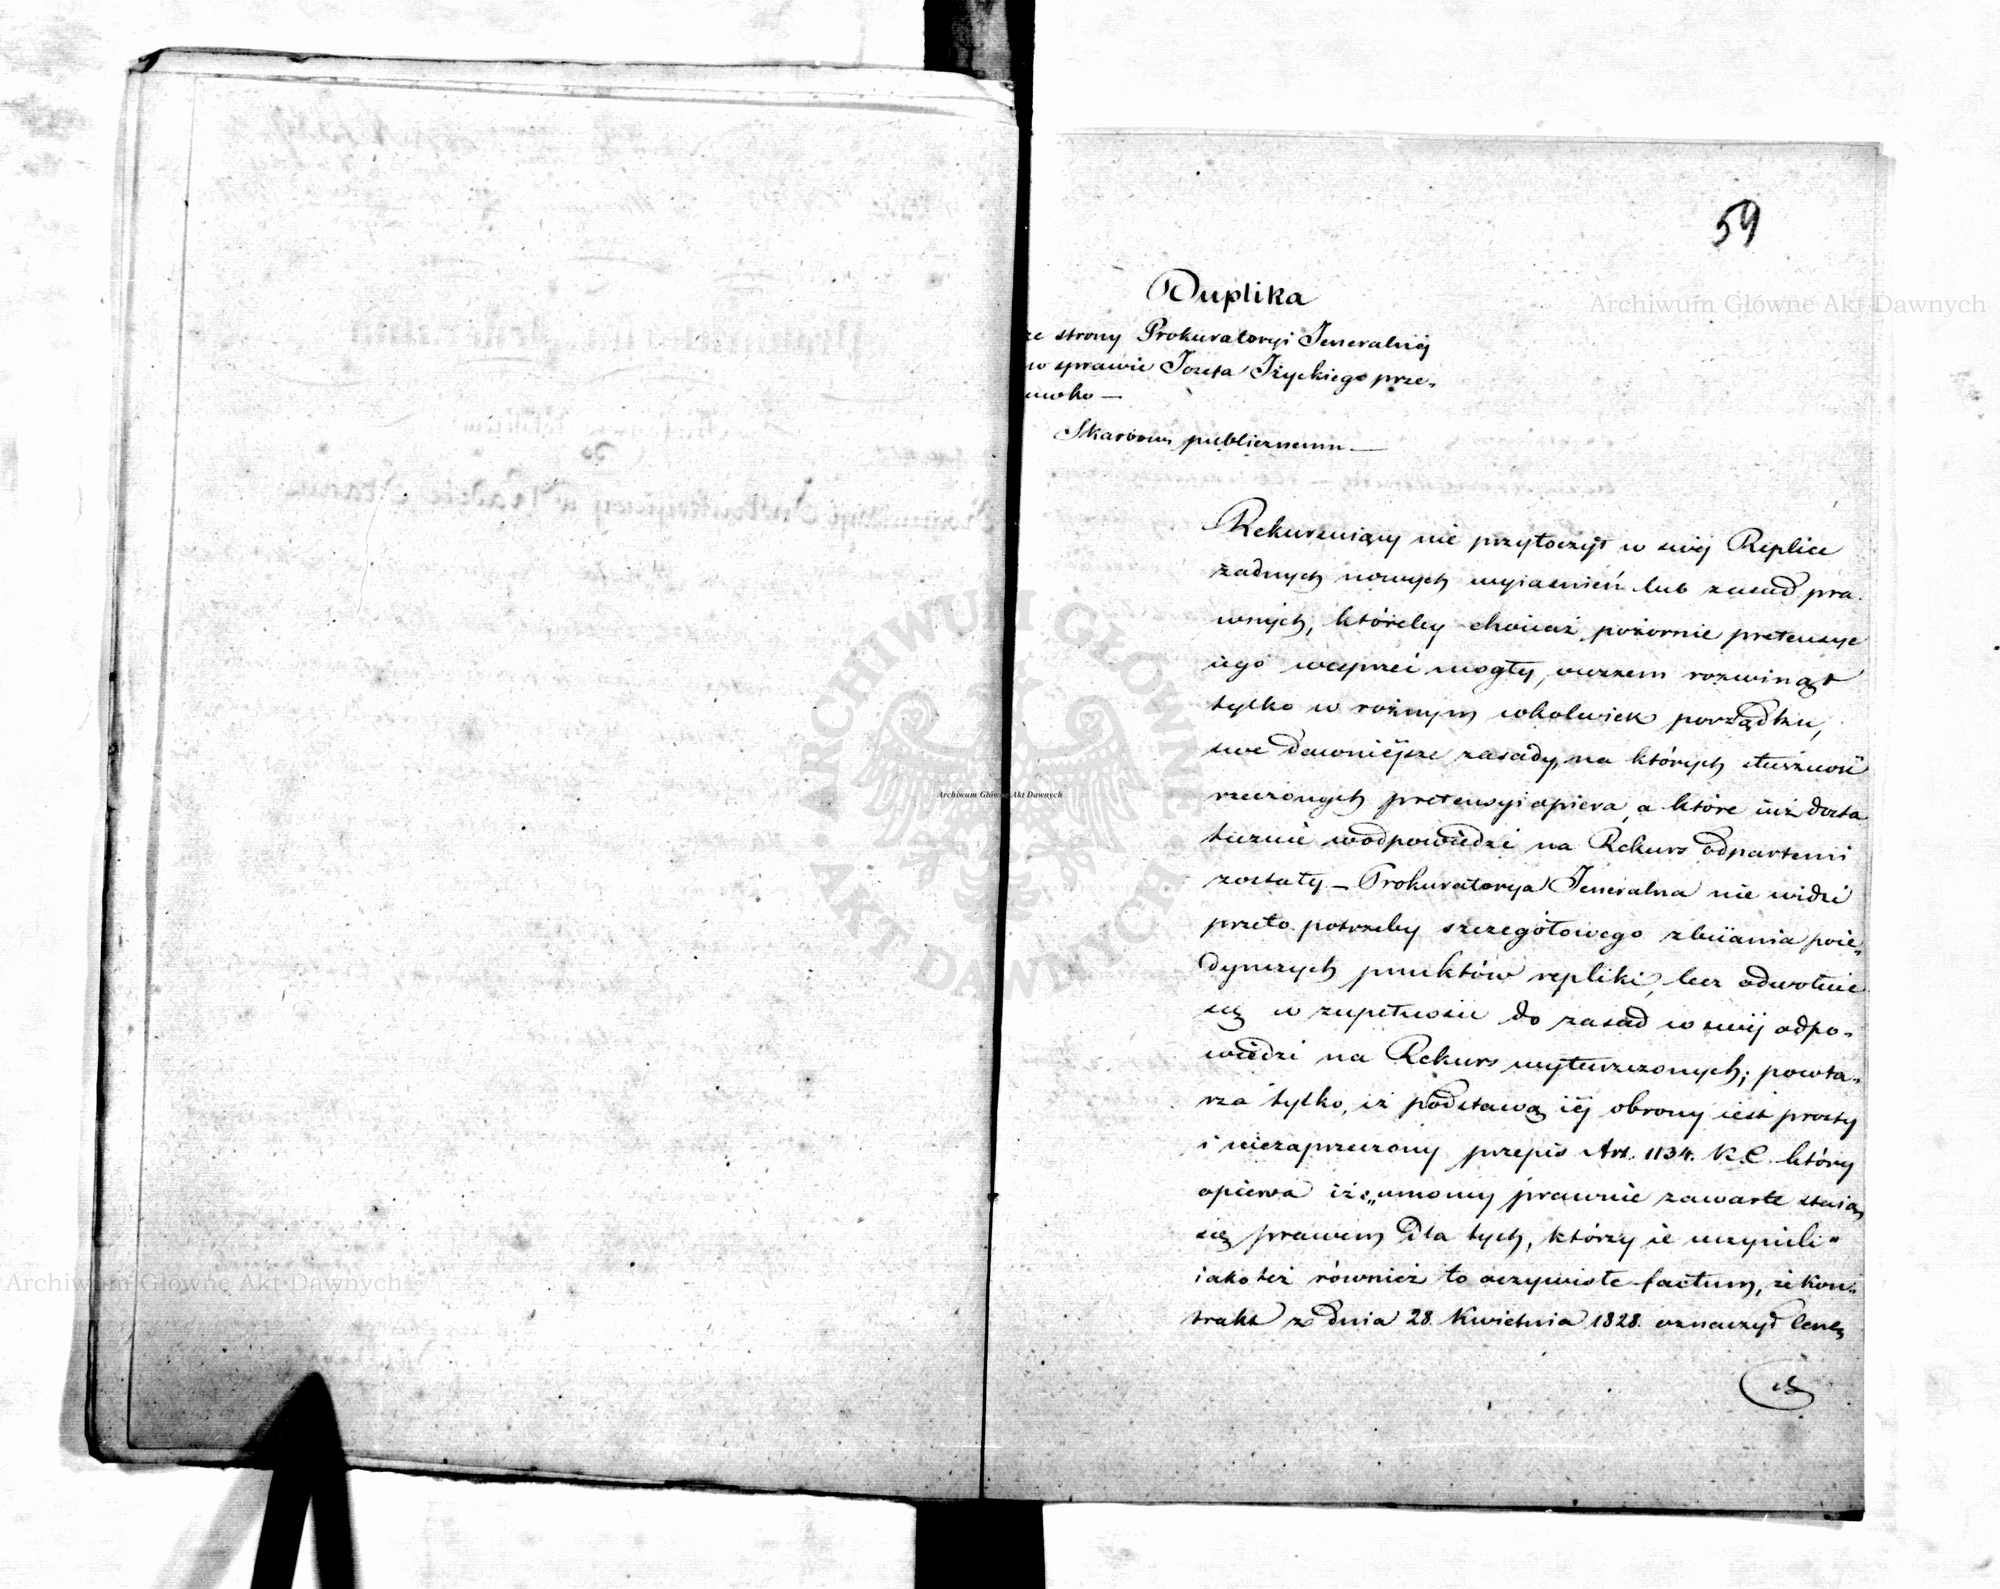 59
Duplika
ze strony Prokuratoryi Jeneralnéj
w sprawie Jozefa Iżyckiego prze„
ciwko —
Skarbowi publicznemu —
Rekuruiący nie przytoczył w swéj Replice
żadnych nowych wyiaśnień lub zasad pra„
wnych, któreby chociaż pozornie pretensye
iego wesprzeć mogły, owszem rozwinął
tylko w rożnym cokolwiek porządku,
swe dawniéjsze zasady, na których słuszność
rzeczonych pretensyi opiera, a które iuż dosta„
tecznie w odpowiedzi na Rekurs odpartemi
zostały — Prokuratorya Jeneralna nie widzi
przeto potrzeby szczegółowego zbiiania poie„
dynczych punktów repliki, lecz odwołuie
się w zupełności do zasad w swéj odpo„
wiedzi na Rekurs wyłuszczonych; powta„
rza tylko, iż podstawą iéj obrony iest prosty
i niezaprzeczony przepis Art. 1134. K. C. który
opiewa iż: „umowy prawnie zawarte staią
się prawem dla tych, którzy ie uczynili"
iakoteż również to oczywiste factum, że kon„
trakt z dnia 28. Kwietnia 1828. oznaczył cenę
Archiwum Główne Akt Dawnych
Archiwum Główne Akt Dawnych
Archiwum Główne Akt Dawnych
ARCHIWUM GŁÓWNE AKT DAWNYCH